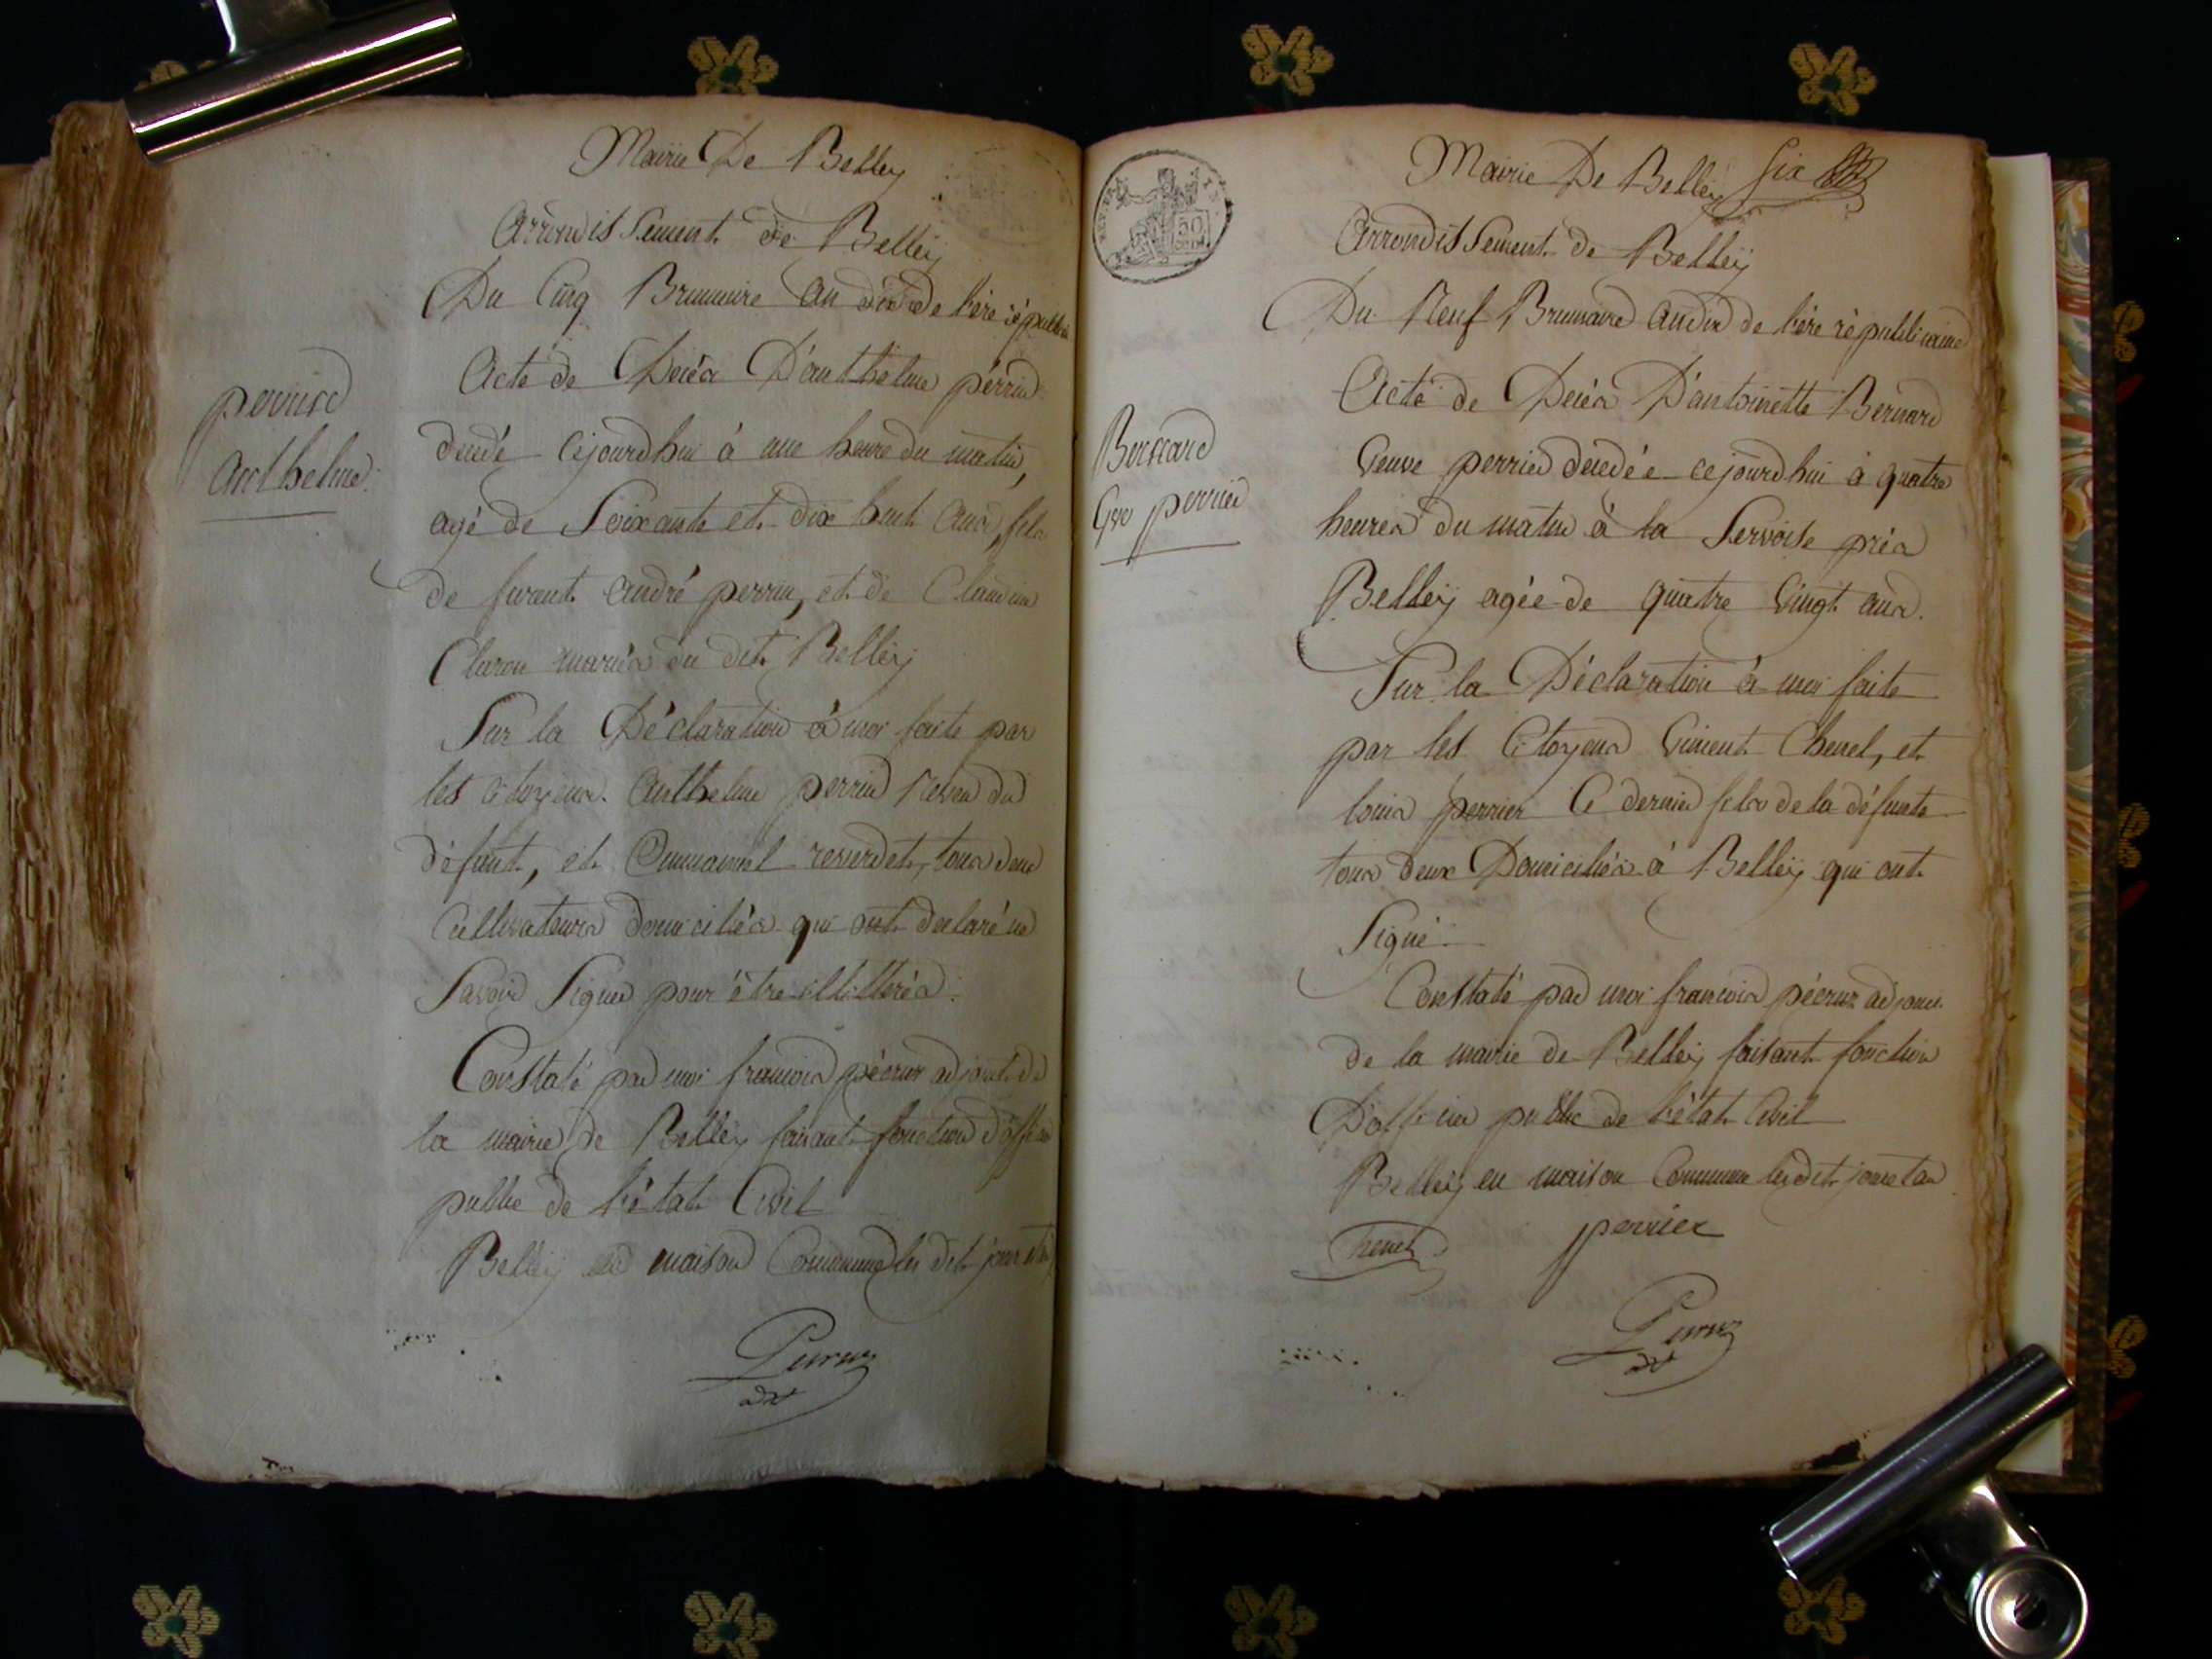 Mairie De Belley
Arrondissement de Belleÿ
Du Cinq Brumaire an dix de l'ère républic
perrin
anthelme.
Acte de Décés D'anthelme perrin
decedé cejourdhui à une heure du matin,
agé de Soixante et dix huit ans, fils
de furent andré perrin, et de Claudine
mariés du dit Belleÿ
Sur la Déclaration à moi faite par
les citoyens anthelme perrin Neveu du
défunt, et Emmanuel tous deux
Cultivateurs domiciliés qui ont déclaré ne
Savoir Signer pour être illittérés.
Constaté par moi francois pécruz adjoint de
la mairie de Belleÿ faisant fonction d'officier
public de l'état Civil
Belleÿ en maison Commune les dit jour et an
Mairie De Belleÿ Six
50
Arrondissement de Belleÿ
Du Neuf Brumaire an dix de l'ère républicaine
Bernard
Gve perrier
Acte de Décés D'antoinette Bernard
Veuve perrier decedée cejourdhui à quatre
heures du matin à la Servoise prés
Belleÿ agée de quatre Vingt ans.
Sur la Déclaration à moi faite
par les Citoyens Vincent Chenel, et
louis perrier Ce dernier fils de la défunte
tous deux Domiciliés à Belleÿ qui ont
Signé
Constaté par moi francois pécruz adjoint
de la mairie de Belleÿ faisant fonction
D'officier public de l'état Civil
Belleÿ en maison Commune les dit jour et an
Chenel perrier